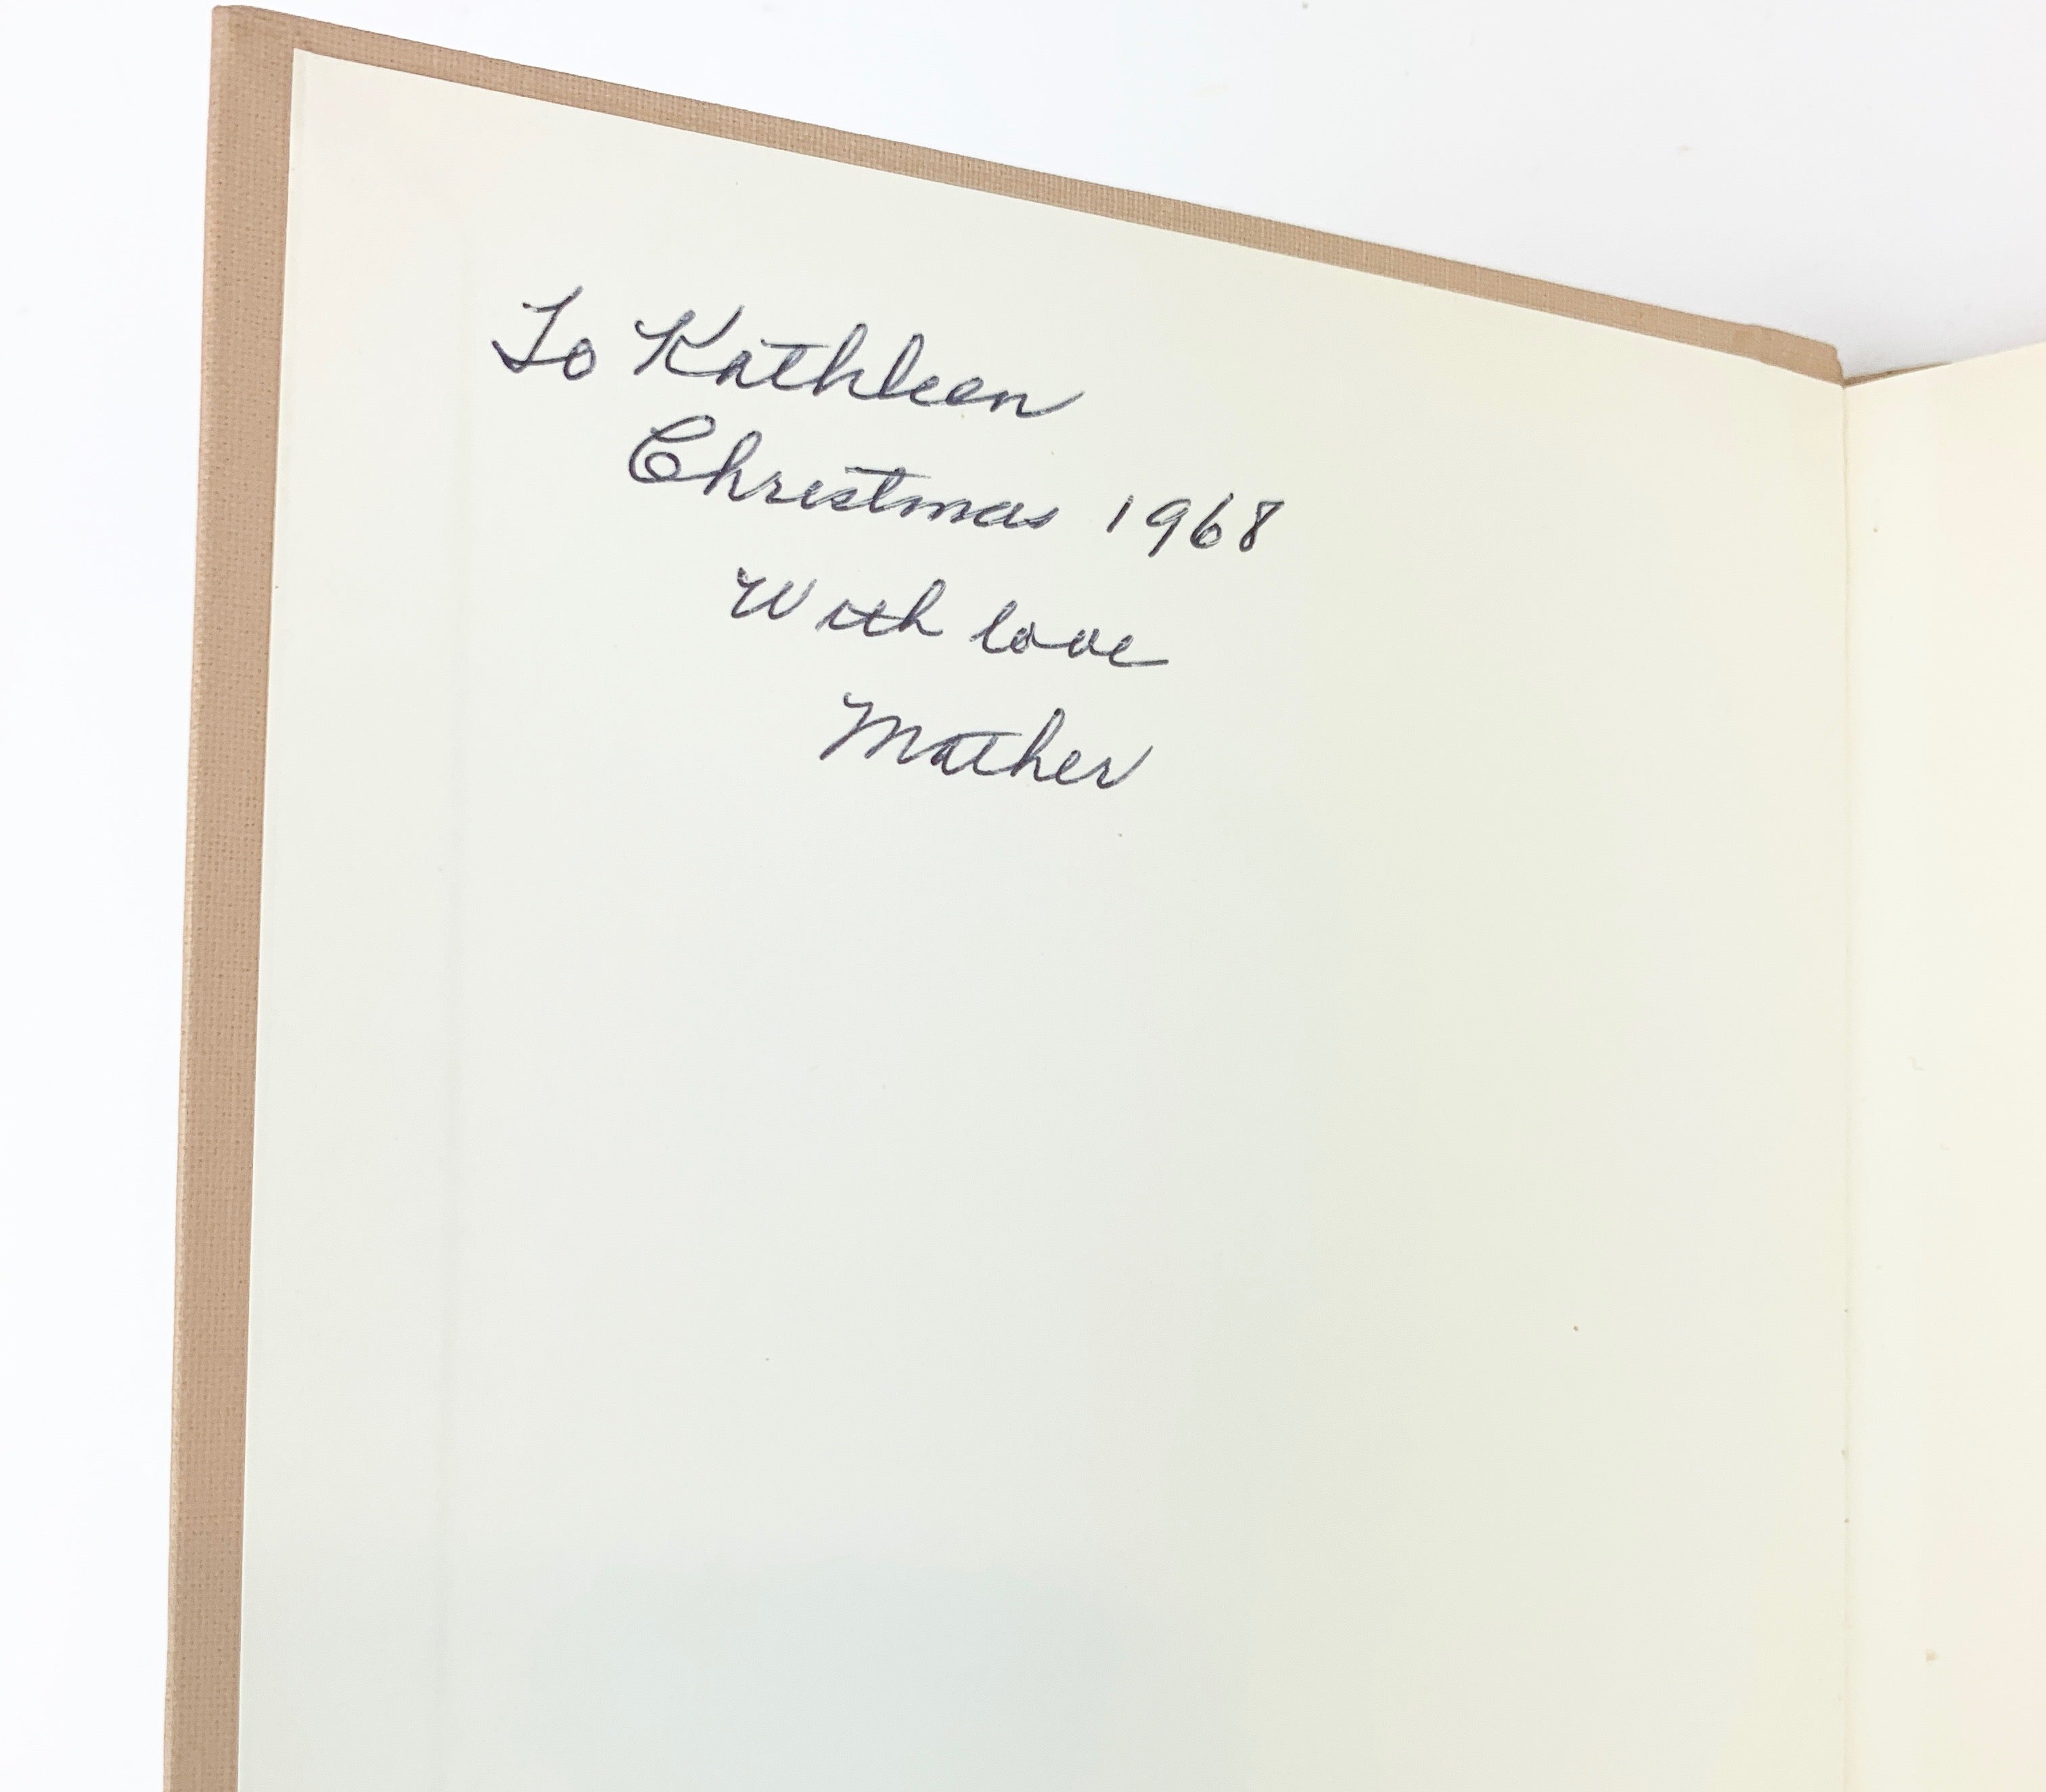 To Kathleen
Christmas 1968
With love
Mother